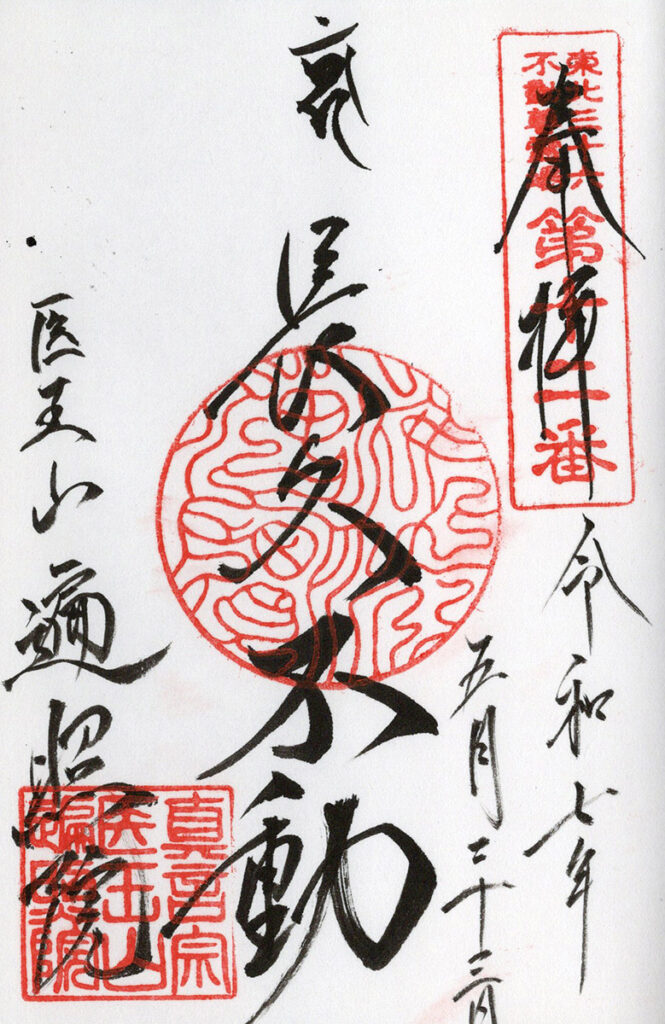 奉拝
東北三十六
不動尊霊場
第十二番
令和七年
五月二十三日
長久不動
医王山 遍照院
真言宗
医王山
遍照院